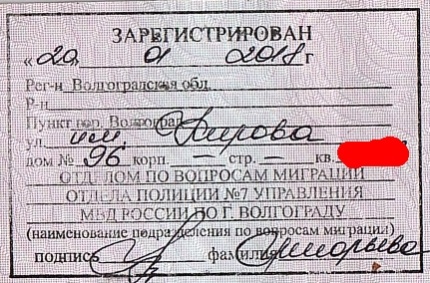 ЗАРЕГИСТРИРОВАН
«20» 01 2018 г
Рег-н Волгоградская обл.
Р-н
Пункт гор. Волгоград
ул. им. Кирова
дом № 96 корп. — стр. — кв.
ОТД-ДОМ ПО ВОПРОСАМ МИГРАЦИИ
ОТДЕЛА ПОЛИЦИИ №7 УПРАВЛЕНИЯ
МВД РОССИИ ПО Г. ВОЛГОГРАДУ
(наименование подразделения по вопросам миграции)
подпись фамилия